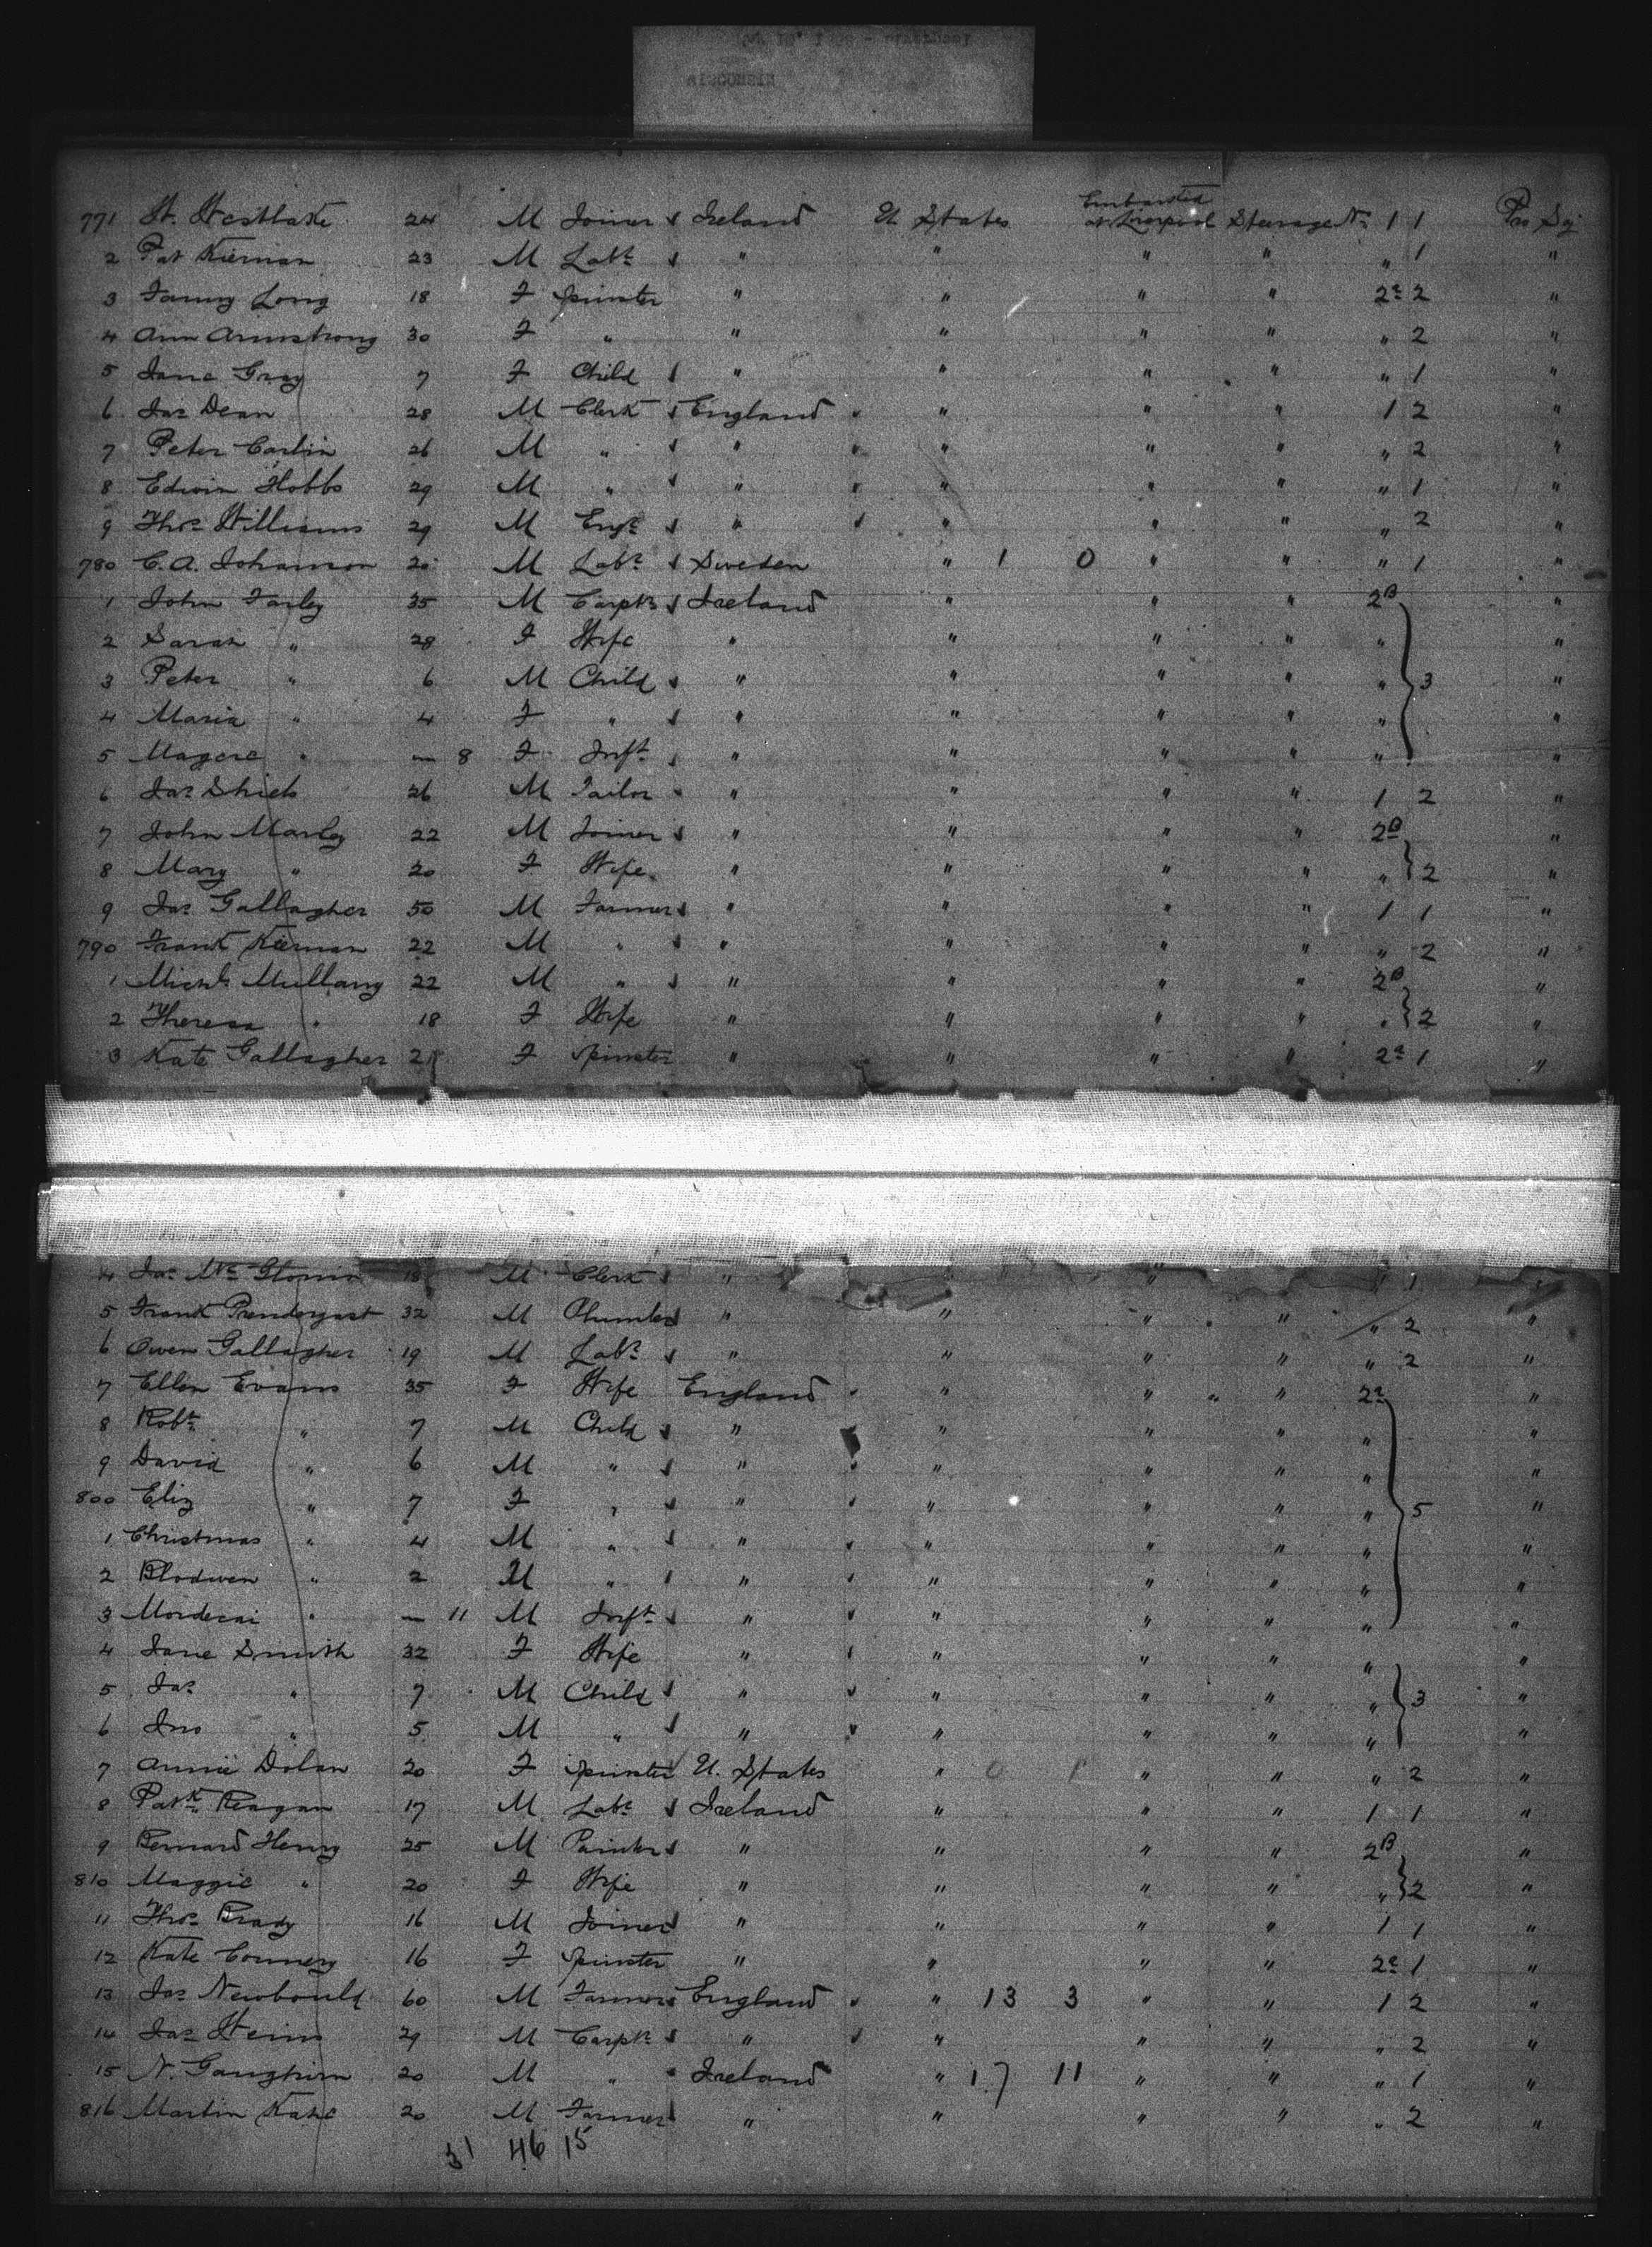 771 W. Westlake 24 M Joiner Ireland U States Embarked at Liverpool Steerage No 1 1 Pro Soj
2 Pat Kiernan 23 M Labr " " " " " 1 "
3 Fanny Long 18 F Spinster " " " " 2a 2 "
4 Ann Armstrong 30 F " " " " " " 2 "
5 Jane Gray 7 F Child " " " " " 1 "
6 Jas Dean 28 M Clerk England " " " 1 2 "
7 Peter Carlin 26 M " " " " " " 2 "
8 Edwin Hobbs 29 M " " " " " " 1 "
9 Thos Williams 29 M Engr " " " " " 2 "
780 C. A. Johanson 20 M Labr Sweden " 1 0 " " " 1 "
1 John Farley 35 M Carptr Ireland " " " 2B "
2 Sarah " 28 F Wife " " " " " "
3 Peter " 6 M Child " " " " " 3 "
4 Maria " 4 F " " " " " " "
5 " — 8 F Inft " " " " " "
6 Jas Shiels 26 M Tailor " " " " 1 2 "
7 John Marley 22 M Joiner " " " " 2B "
8 Mary " 20 F Wife " " " " " 2 "
9 Jas Gallagher 50 M Farmer " " " " 1 1 "
790 Frank Kiernan 22 M " " " " " " 2 "
1 Michl Mullany 22 M " " " " " 2B "
2 Theresa " 18 F Wife " " " " " 2 "
3 Kate Gallagher 21 F Spinster " " " " 2a 1 "
4 Jas 18 M Clerk " " 1 1 "
5 Frank Prendergast 32 M Plumber " " " " " 2 "
6 Owen Gallagher 19 M Labr " " " " " 2 "
7 Ellen Evans 35 F Wife England " " " 2a "
8 Robt " 7 M Child " " " " " "
9 David " 6 M " " " " " " "
800 Eliz " 7 F " " " " " " 5 "
1 Christmas " 4 M " " " " " " "
2 Blodwen " 2 M " " " " " " "
3 Mordecai " — 11 M Inft " " " " " "
4 Jane Smith 32 F Wife " " " " " "
5 Jas " 7 M Child " " " " " 3 "
6 Jno " 5 M " " " " " " "
7 Annie Dolan 20 F Spinster U. States " 0 1 " " " 2 "
8 Patk Reagan 17 M Labr Ireland " " " 1 1 "
9 Bernard Henry 25 M Painter " " " " 2B "
810 Maggie " 20 F Wife " " " " " 2 "
11 Thos Brady 16 M Joiner " " " " 1 1 "
12 Kate Connery 16 F Spinster " " " " 2a 1 "
13 Jas Newbould 60 M Farmer England " 13 3 " " 1 2 "
14 Jas 29 M Carptr " " " " " 2 "
15 N. 20 M " Ireland " 17 11 " " " 1 "
816 Martin Kane 20 M Farmer " " " " " 2 "
31 46 15